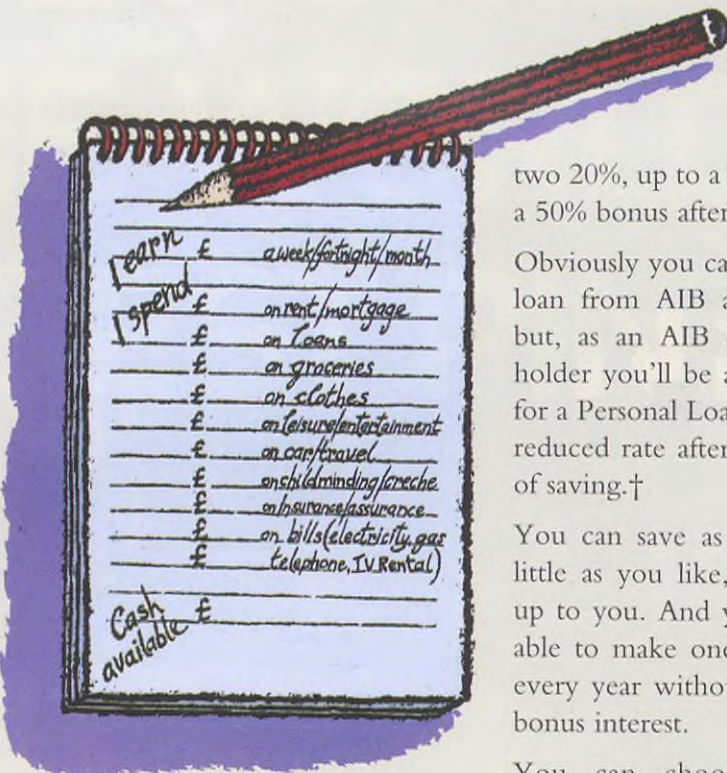 I earn £ a week/fortnight/month
I spend £ on rent/mortgage
£ on Loans
£ on groceries
£ on clothes
£ on leisure/entertainment
£ on car/travel
£ on childminding/creche
£ on Insurance/assurance
£ on bills (electricity, gas
£ telephone, TV Rental)
Cash
available £
two 20%, up to a
a 50% bonus after
Obviously you ca
loan from AIB a
but, as an AIB
holder you'll be a
for a Personal Loa
reduced rate after
of saving.†
You can save as
little as you like,
up to you. And y
able to make one
every year withou
bonus interest.
You can choo